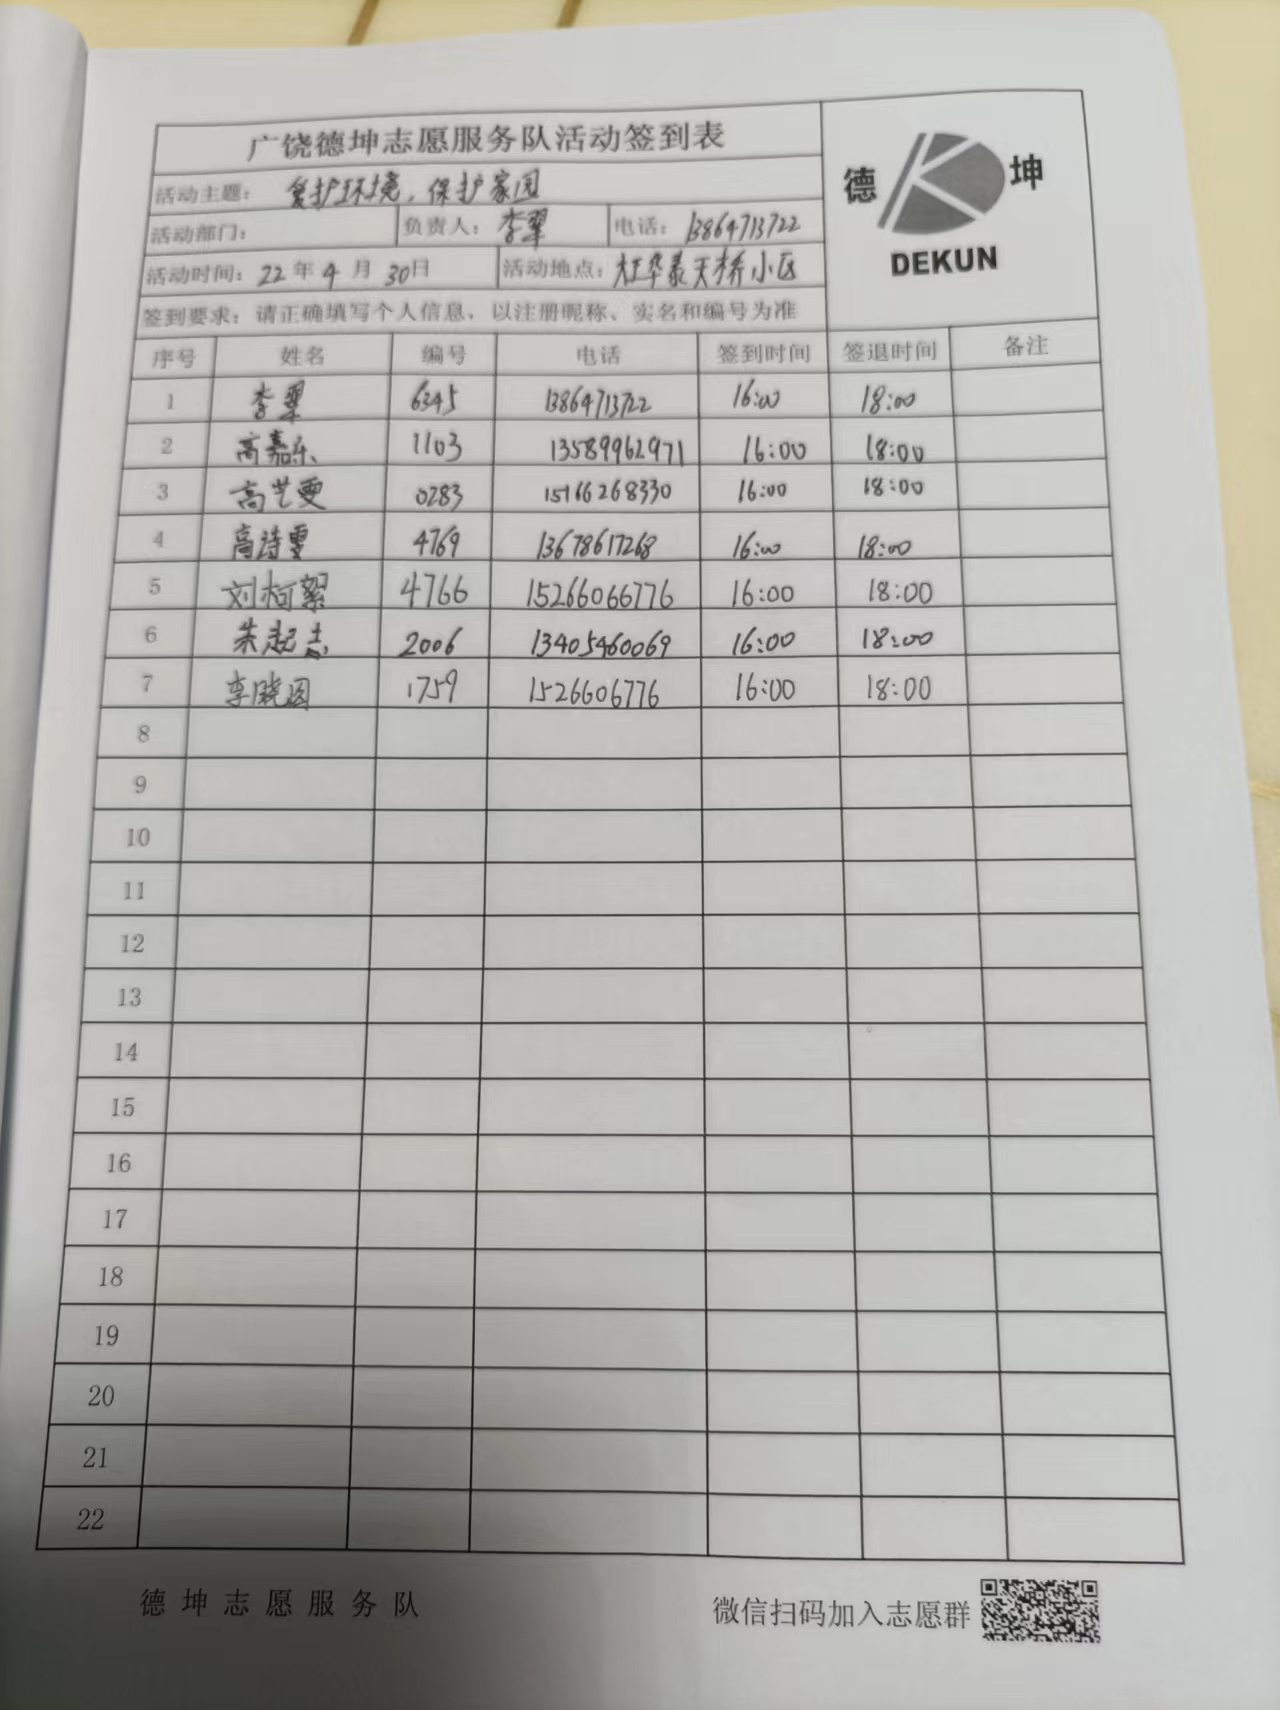 广饶德坤志愿服务队活动签到表
德 坤
DEKUN
活动主题：爱护环境，保护家园
活动部门： 负责人：李翠 电话：13864713722
活动时间：22年4月30日 活动地点：华泰天桥小区
签到要求：请正确填写个人信息，以注册昵称、实名和编号为准
序号 姓名 编号 电话 签到时间 签退时间 备注
1 李翠 6345 13864713722 16:00 18:00
2 高嘉乐 1103 13589962971 16:00 18:00
3 高艺雯 0283 15166268330 16:00 18:00
4 高诗雯 4769 13678617268 16:00 18:00
5 刘柯絮 4766 15266066776 16:00 18:00
6 朱起杰 2006 13405460069 16:00 18:00
7 李晓园 1759 1526606776 16:00 18:00
8
9
10
11
12
13
14
15
16
17
18
19
20
21
22
德坤志愿服务队 微信扫码加入志愿群